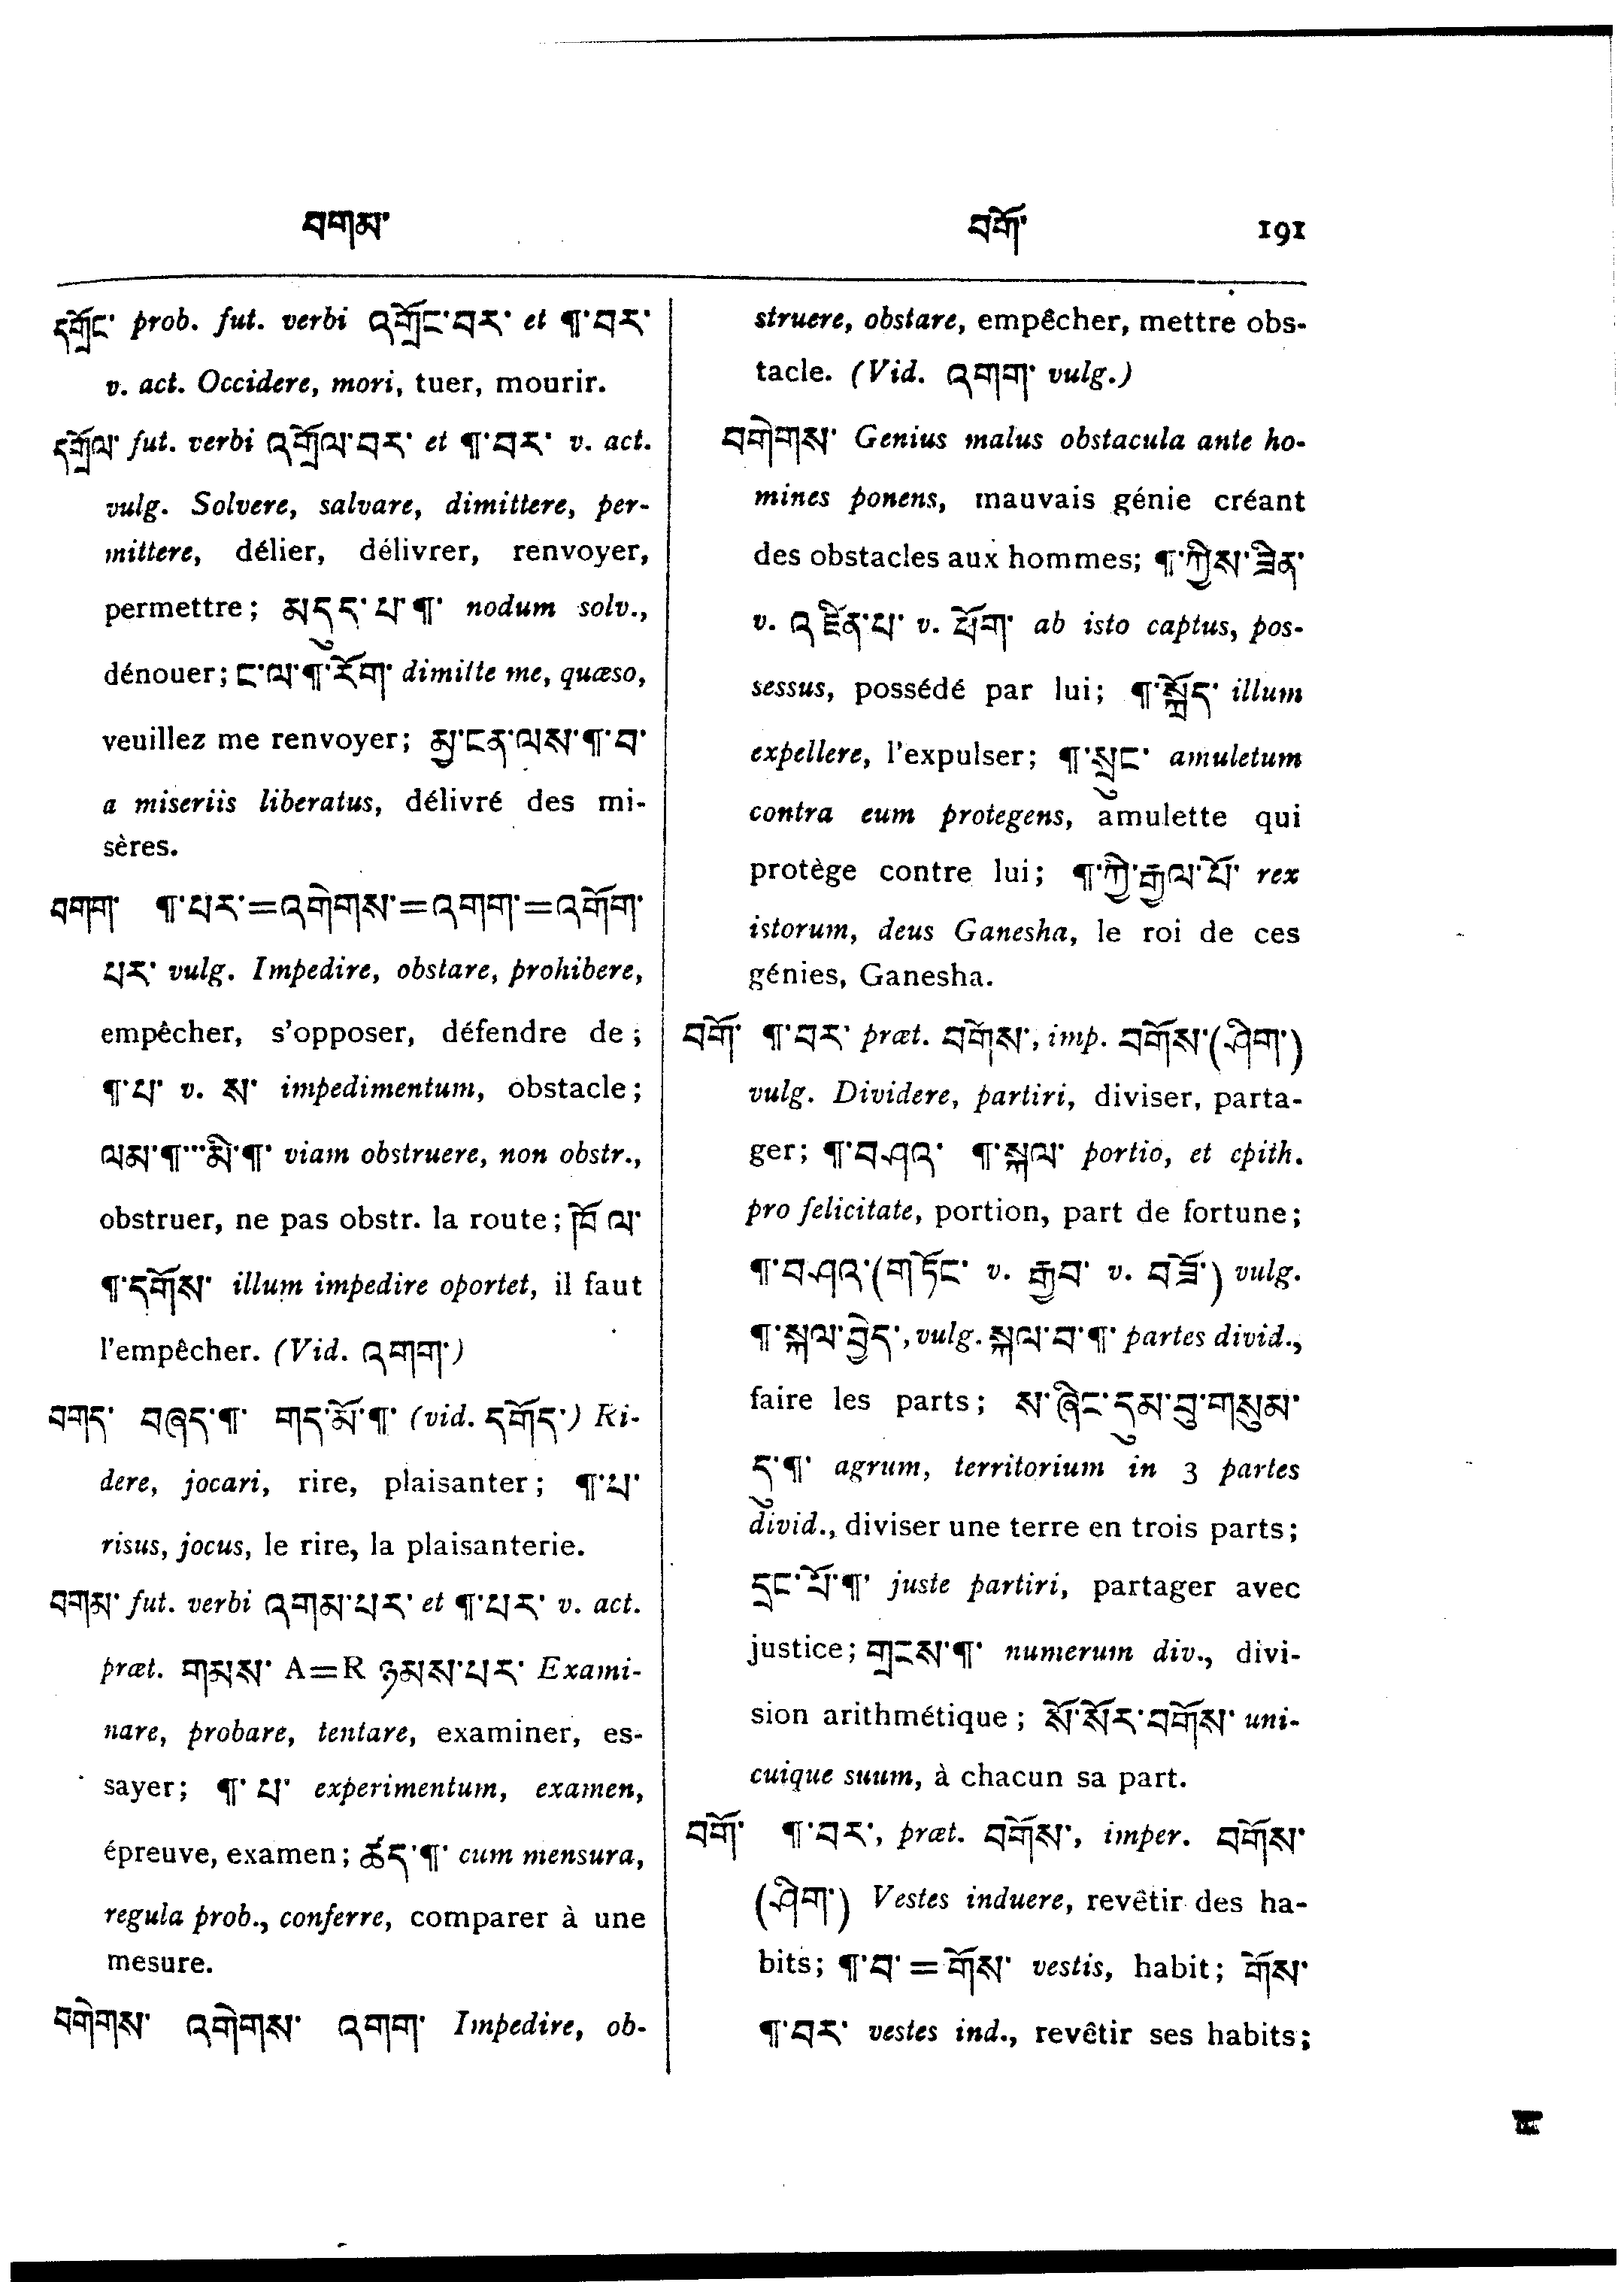 བགམ་ བགོ་ 191
དགྲོང་ prob. fut. verbi འགྲོང་བར་ et ¶་བར་
v. act. Occidere, mori, tuer, mourir.
དགྲོལ་ fut. verbi འགྲོལ་བར་ et ¶་བར་ v. act.
vulg. Solvere, salvare, dimittere, per-
mittere, délier, délivrer, renvoyer,
permettre; མདུད་པ་¶་ nodum solv.,
dénouer; ང་ལ་¶་རོག་ dimitte me, quæso,
veuillez me renvoyer; མྱ་ངན་ལས་¶་བ་
a miseriis liberatus, délivré des mi-
sères.
བགག་ ¶་པར་=འགེགས་=འགག་=འགོག་
པར་ vulg. Impedire, obstare, prohibere,
empêcher, s'opposer, défendre de;
¶་པ་ v. ས་ impedimentum, obstacle;
ལམ་¶་...མི་¶་ viam obstruere, non obstr.,
obstruer, ne pas obstr. la route; ཁོ་ལ་
¶་དགོས་ illum impedire oportet, il faut
l'empêcher. (Vid. འགག་)
བགད་ བཞད་¶་ གད་མོ་¶་ (vid. དགོད་) Ri-
dere, jocari, rire, plaisanter; ¶་པ་
risus, jocus, le rire, la plaisanterie.
བགམ་ fut. verbi འགམ་པར་ et ¶་པར་ v. act.
præt. གམས་ A=R ཉམས་པར་ Exami-
nare, probare, tentare, examiner, es-
sayer; ¶་པ་ experimentum, examen,
épreuve, examen; ཚད་¶་ cum mensura,
regula prob., conferre, comparer à une
mesure.
བགེགས་ འགེགས་ འགག་ Impedire, ob-
struere, obstare, empêcher, mettre obs-
tacle. (Vid. འགག་ vulg.)
བགེགས་ Genius malus obstacula ante ho-
mines ponens, mauvais génie créant
des obstacles aux hommes; ¶་ཀྱིས་ཟིན་
v. འཛིན་པ་ v. ཕོག་ ab isto captus, pos-
sessus, possédé par lui; ¶་སྐྲོད་ illum
expellere, l'expulser; ¶་སྲུང་ amuletum
contra eum protegens, amulette qui
protège contre lui; ¶་ཀྱི་རྒྱལ་པོ་ rex
istorum, deus Ganesha, le roi de ces
génies, Ganesha.
བགོ་ ¶་བར་ præt. བགོས་, imp. བགོས་(ཤིག་)
vulg. Dividere, partiri, diviser, parta-
ger; ¶་བཤའ་ ¶་སྐལ་ portio, et epith.
pro felicitate, portion, part de fortune;
¶་བཤའ་(གཏོང་ v. རྒྱབ་ v. བཟོ་) vulg.
¶་སྐལ་བྱེད་, vulg. སྐལ་བ་¶་ partes divid.,
faire les parts; ས་ཞིང་དུམ་བུ་གསུམ་
དུ་¶་ agrum, territorium in 3 partes
divid., diviser une terre en trois parts;
དྲང་པོ་¶་ juste partiri, partager avec
justice; གྲངས་¶་ numerum div., divi-
sion arithmétique; སོ་སོར་བགོས་ uni-
cuique suum, à chacun sa part.
བགོ་ ¶་བར་, præt. བགོས་, imper. བགོས་
(ཤིག་) Vestes induere, revêtir des ha-
bits; ¶་བ་=གོས་ vestis, habit; གོས་
¶་བར་ vestes ind., revêtir ses habits;